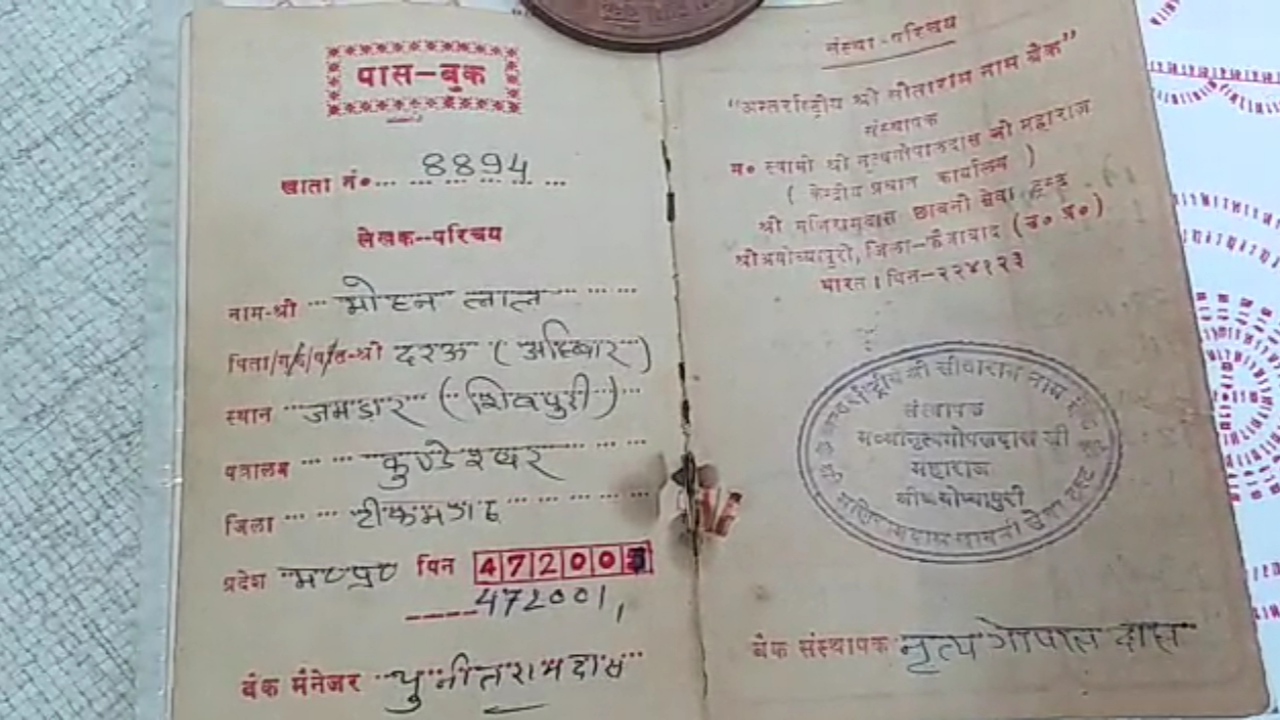 पास-बुक
खाता नं०... 8894
लेखक--परिचय
नाम-श्री ... मोहन लाल
पिता/गु/प/ल-श्री दरऊ (अहिरवार)
स्थान जमडार (शिवपुरी)
पत्रालय ... कुण्डेश्वर
जिला ... टीकमगढ़
प्रदेश म०प्र० पिन 47200
472001,
बैंक मैनेजर पुनीतरामदास
संस्था-परिचय
"अन्तर्राष्ट्रीय श्री सीताराम नाम बैंक"
संस्थापक
म० स्वामी श्री नृत्यगोपालदास जी महाराज
( केन्द्रीय प्रधान कार्यालय )
श्री मणिरामदास छावनी सेवा ट्रस्ट
श्रीअयोध्यापुरी, जिला-फैजाबाद (उ० प्र०)
भारत । पिन-२२४१२३
अन्तर्राष्ट्रीय श्री सीताराम नाम बैंक
संस्थापक
म०श्रीनृत्यगोपालदास जी
महाराज
श्रीअयोध्यापुरी
मणिरामदास छावनी सेवा ट्रस्ट
बैंक संस्थापक नृत्य गोपाल दास